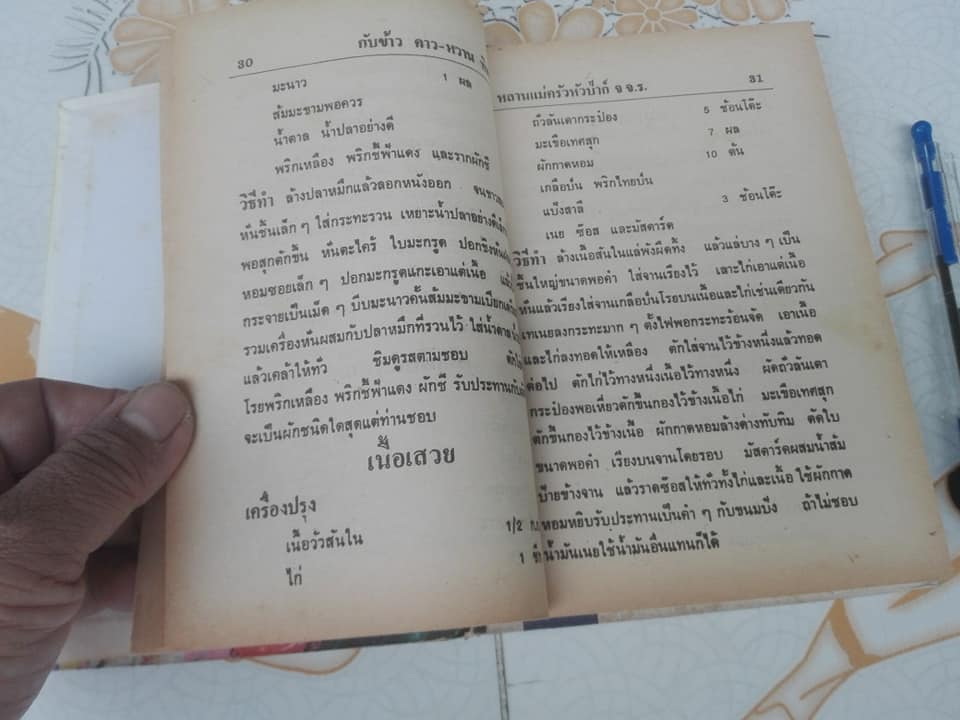 30 กับข้าว คาว-หวาน
มะนาว 1 ผล
ส้มมะขามพอควร
น้ำตาล น้ำปลาอย่างดี
พริกเหลือง พริกชี้ฟ้าแดง และรากผักชี
วิธีทำ ล้างปลาหมึกแล้วลอกหนังออก
หั่นชิ้นเล็ก ๆ ใส่กระทะรวน เหยาะน้ำปลาอย่างดี
พอสุกตักขึ้น หั่นตะไคร้ ใบมะกรูด ปอกขิง
หอมซอยเล็ก ๆ ปอกมะกรูดแกะเอาแต่เนื้อ
กระจายเป็นเม็ด ๆ บีบมะนาวคั้นส้มมะขามเปียก
รวมเครื่องหั่นผสมกับปลาหมึกที่รวนไว้ ใส่น้ำตาล
แล้วเคล้าให้ทั่ว ชิมดูรสตามชอบ
โรยพริกเหลือง พริกชี้ฟ้าแดง ผักชี รับประทานกับ
จะเป็นผักชนิดใดสุดแต่ท่านชอบ
เนื้อเสวย
เครื่องปรุง
เนื้อวัวสันใน 1/2
ไก่ 1
หลานแม่ครัวหัวป่าก์ จ.จ.ร. 31
ถั่วลันเตากระป๋อง 5 ช้อนโต๊ะ
มะเขือเทศสุก 7 ผล
ผักกาดหอม 10 ต้น
เกลือป่น พริกไทยป่น
แป้งสาลี 3 ช้อนโต๊ะ
เนย ซ๊อส และมัสตาร์ด
วิธีทำ ล้างเนื้อสันในแล่พังผืดทิ้ง แล้วแล่บาง ๆ เป็น
ชิ้นใหญ่ขนาดพอคำ ใส่จานเรียงไว้ เลาะไก่เอาแต่เนื้อ
หั่นแล้วเรียงใส่จานเกลือป่นโรยบนเนื้อและไก่เช่นเดียวกัน
เทเนยลงกระทะมาก ๆ ตั้งไฟพอกระทะร้อนจัด เอาเนื้อ
และไก่ลงทอดให้เหลือง ตักใส่จานไว้ข้างหนึ่งแล้วทอด
ต่อไป ตักไก่ไว้ทางหนึ่งเนื้อไว้ทางหนึ่ง ผัดถั่วลันเตา
กระป๋องพอเหี่ยวตักขึ้นกองไว้ข้างเนื้อไก่ มะเขือเทศสุก
ตักขึ้นกองไว้ข้างเนื้อ ผักกาดหอมล้างด่างทับทิม ตัดใบ
ขนาดพอคำ เรียงบนจานโดยรอบ มัสตาร์ดผสมน้ำส้ม
ป้ายข้างจาน แล้วราดซ๊อสให้ทั่วทั้งไก่และเนื้อ ใช้ผักกาด
หอมหยิบรับประทานเป็นคำ ๆ กับขนมปัง ถ้าไม่ชอบ
น้ำมันเนยใช้น้ำมันอื่นแทนก็ได้